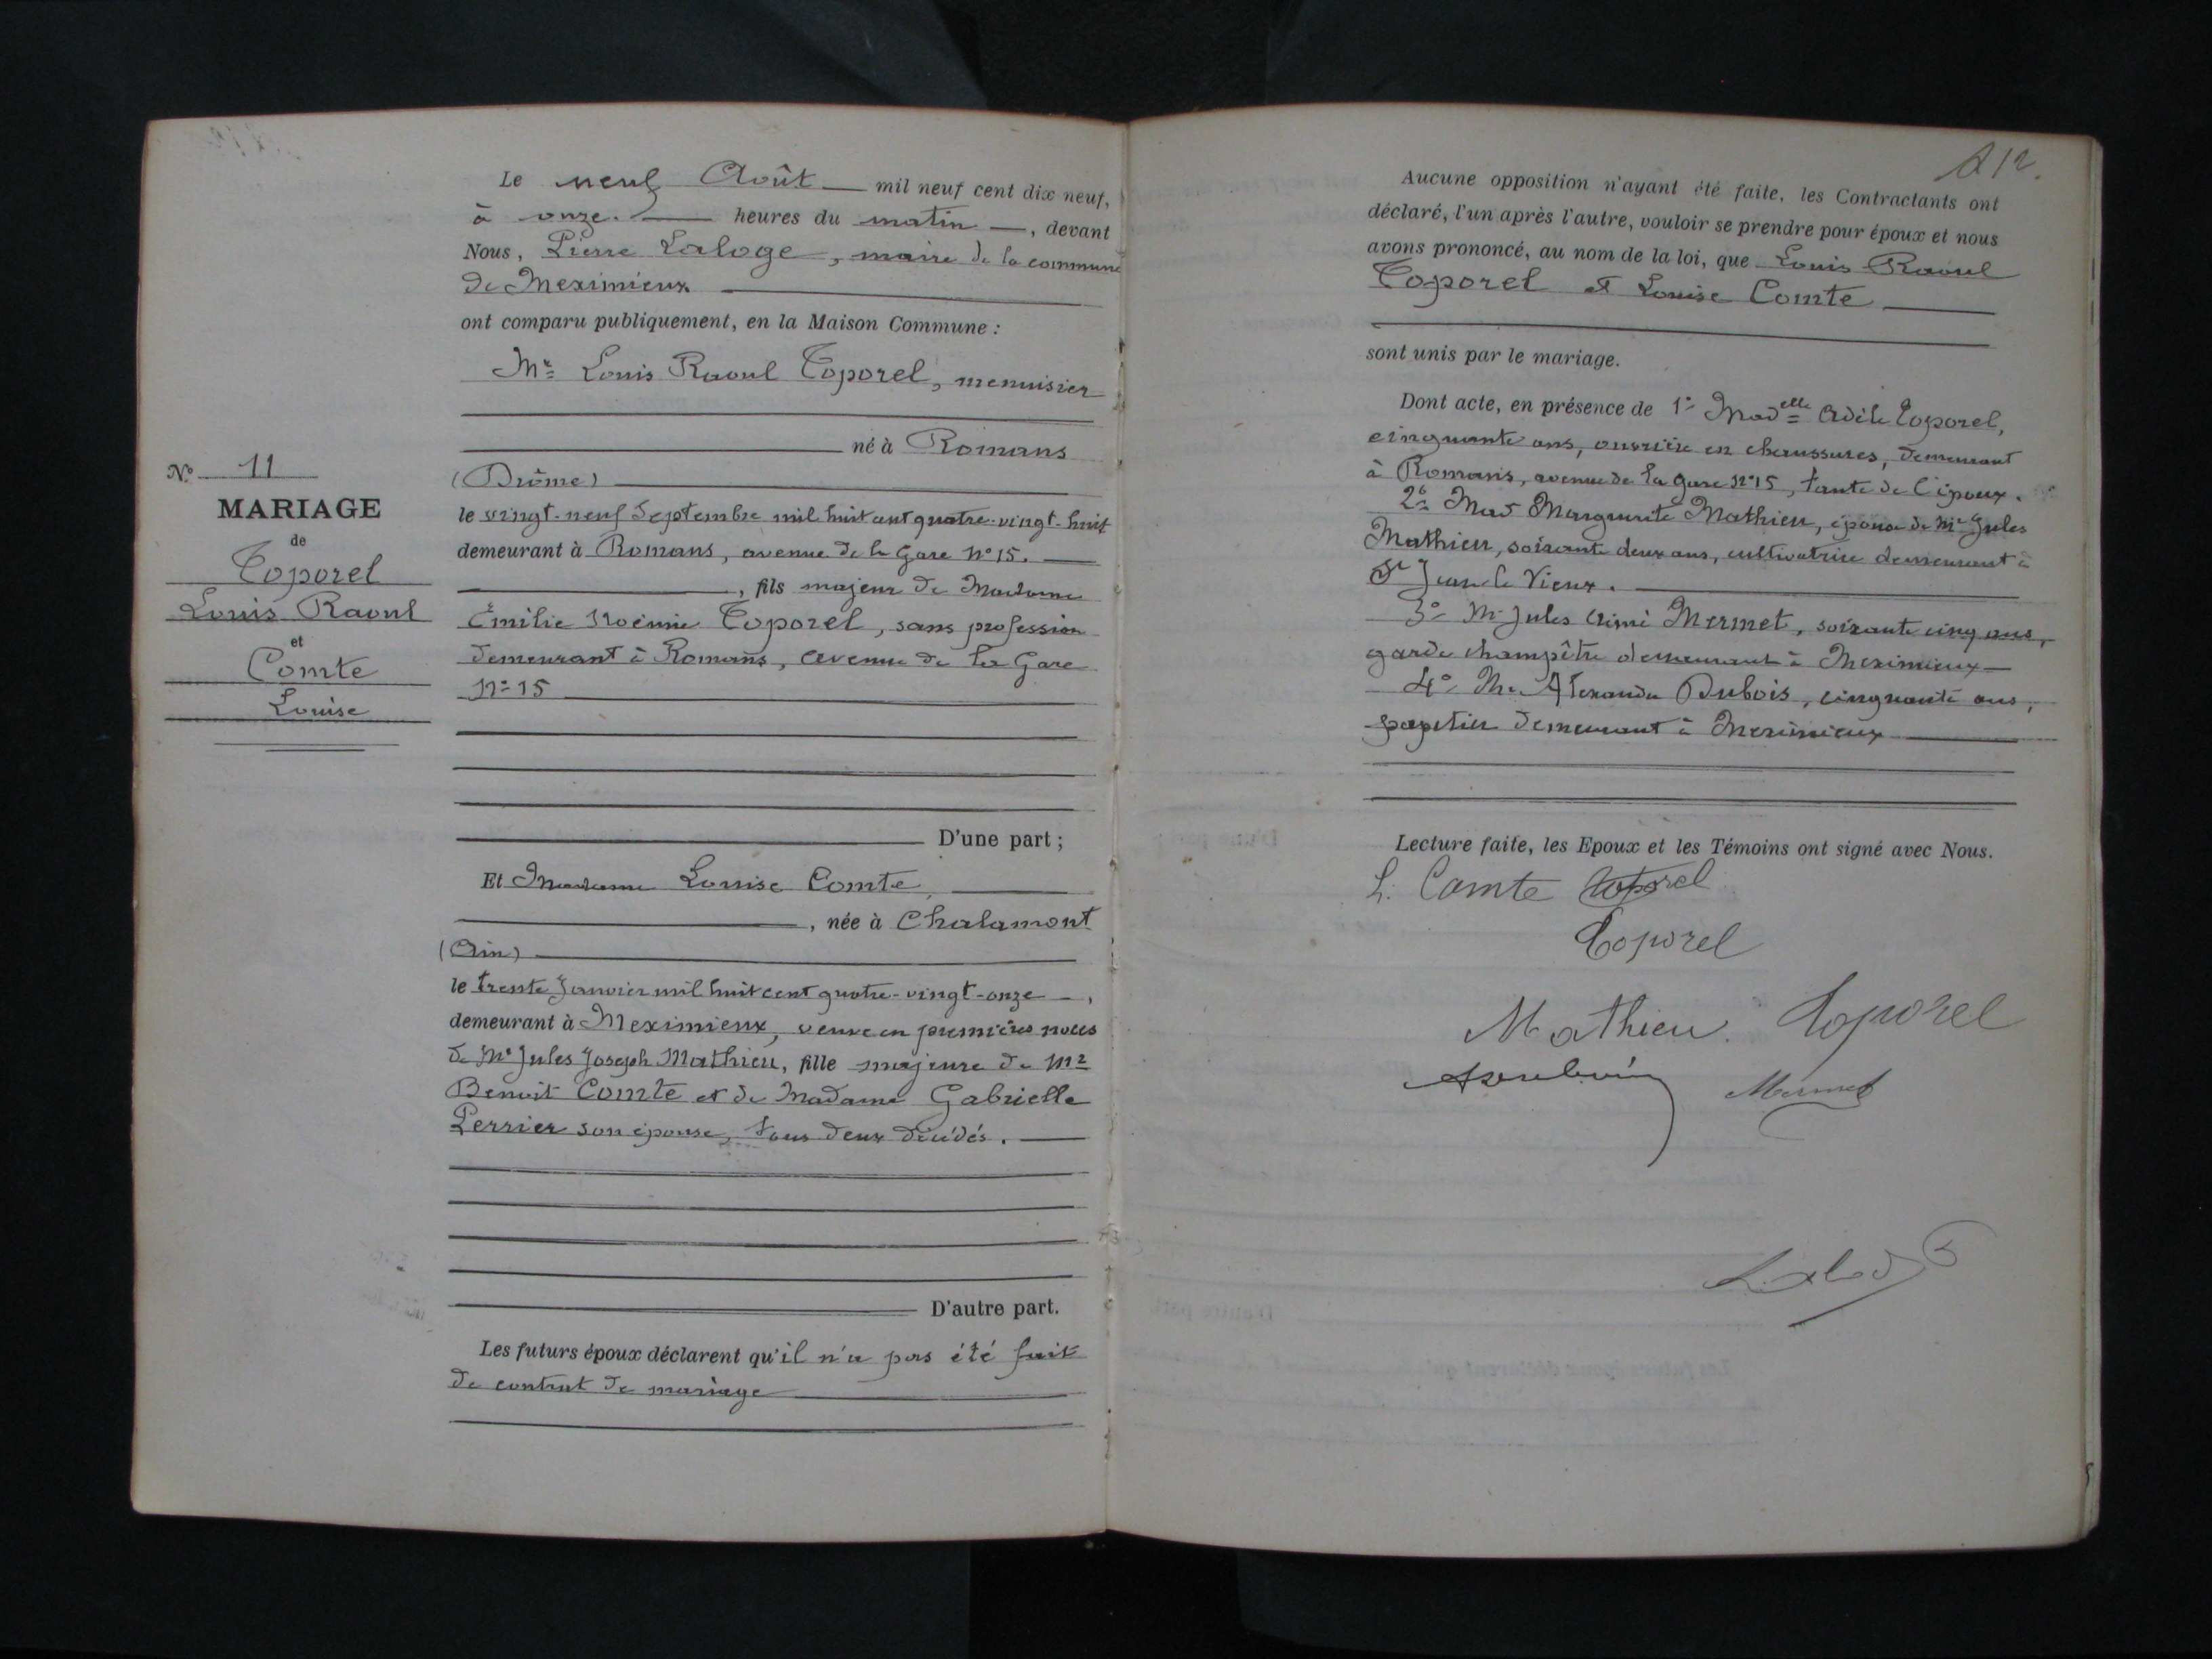 Le neuf Août mil neuf cent dix neuf,
à onze heures du matin, devant
Nous, Pierre Laloge, maire de la commune
de Meximieux
ont comparu publiquement, en la Maison Commune :
Mr Louis Raoul Toporel, menuisier
né à Romans
(Drôme)
le vingt-neuf Septembre mil huit cent quatre-vingt-huit
demeurant à Romans, avenue de la Gare N° 15.
, fils majeur de Madame
Émilie Noémie Toporel, sans profession
demeurant à Romans, avenue de la Gare
N° 15
D'une part ;
N° 11
MARIAGE
de
Toporel
Louis Raoul
et
Comte
Louise
Et Madame Louise Comte
, née à Chalamont
(Ain)
le trente Janvier mil huit cent quatre-vingt-onze,
demeurant à Meximieux, veuve en premières noces
de Mr Jules Joseph Mathieu, fille majeure de Mr
Benoit Comte et de Madame Gabrielle
Perrier son épouse, tous deux décédés.
D'autre part.
Les futurs époux déclarent qu'il n'a pas été fait
de contrat de mariage
A 12.
Aucune opposition n'ayant été faite, les Contractants ont
déclaré, l'un après l'autre, vouloir se prendre pour époux et nous
avons prononcé, au nom de la loi, que Louis Raoul
Toporel et Louise Comte
sont unis par le mariage.
Dont acte, en présence de 1° Madelle Adèle Toporel,
cinquante ans, ouvrière en chaussures, demeurant
à Romans, avenue de la Gare N° 15, tante de l'époux.
2° Mad Marguerite Mathieu, épouse de Mr Jules
Mathieu, soixante deux ans, cultivatrice demeurant à
St Jean le Vieux.
3° Mr Jules Aimé Mermet, soixante cinq ans,
garde champêtre demeurant à Meximieux
4° Mr Alexandre Dubois, cinquante ans,
papetier demeurant à Meximieux
Lecture faite, les Epoux et les Témoins ont signé avec Nous.
L. Comte Toporel
Toporel
Mathieu. Toporel
Mermet